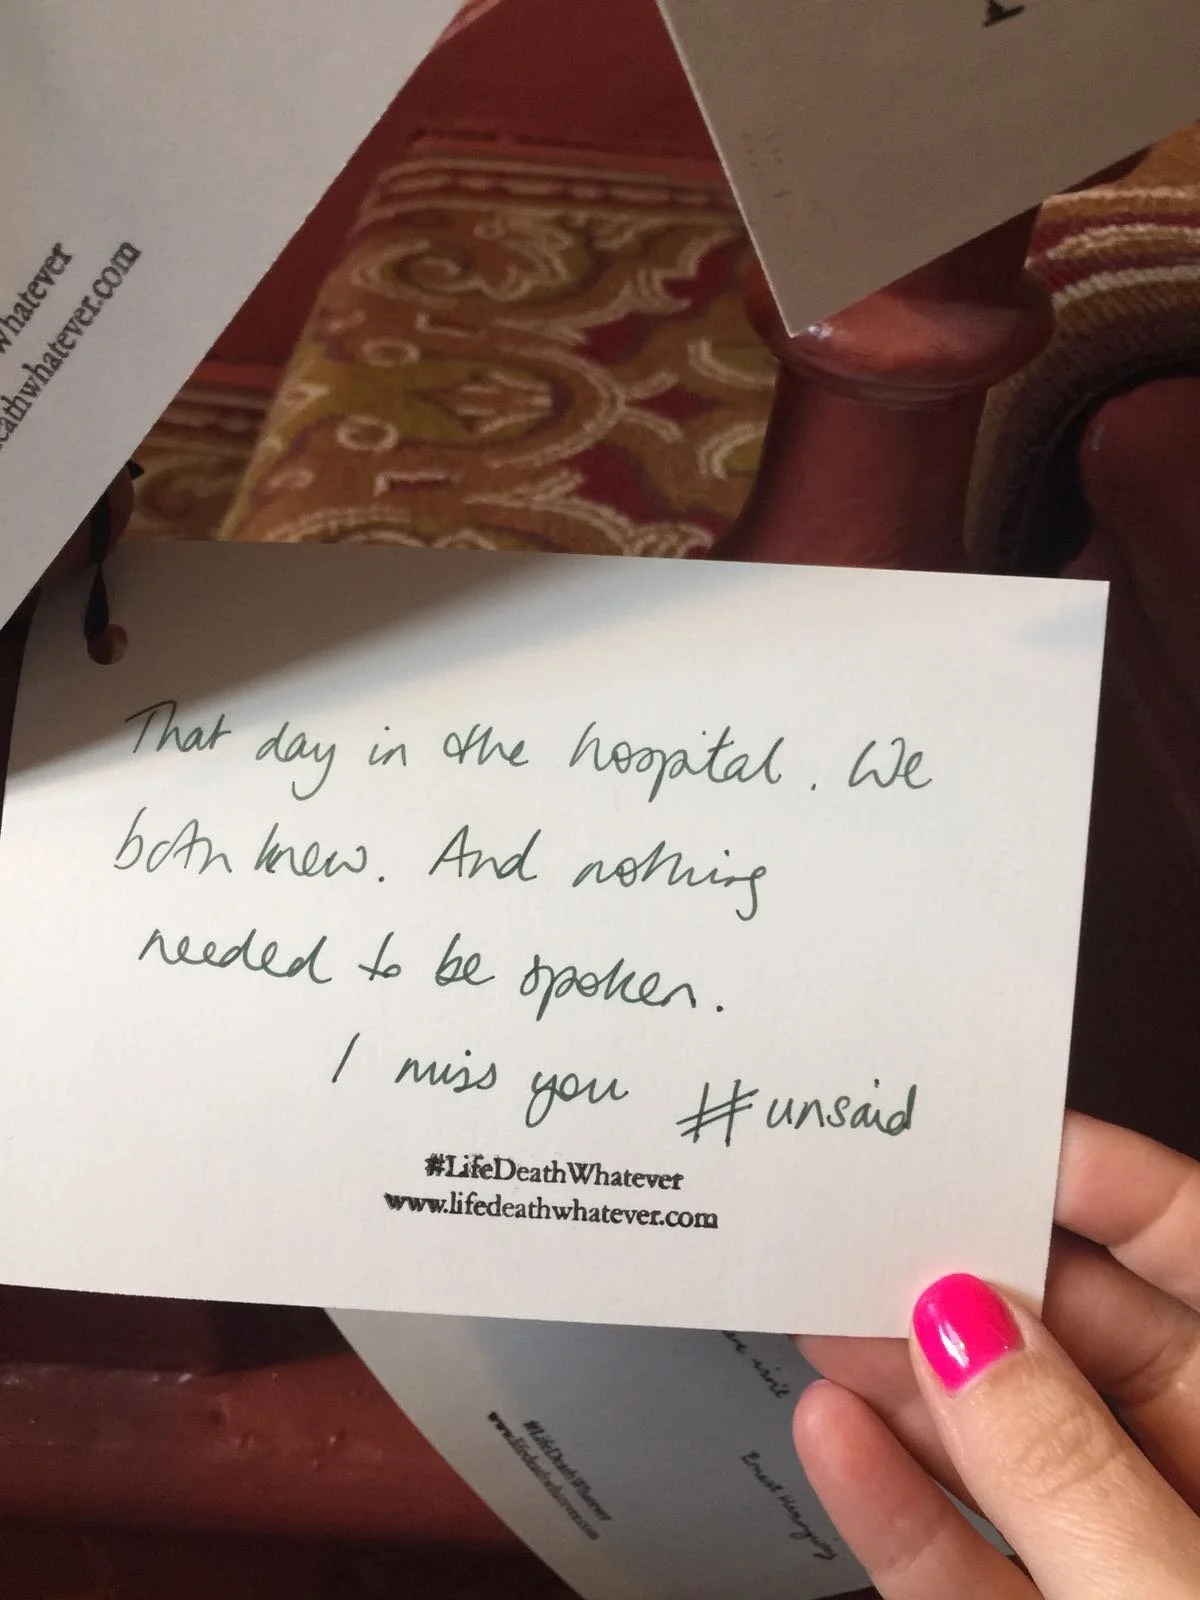 whatever
eathwhatever.com
That day in the hospital. We
both knew. And nothing
needed to be spoken.
I miss you #unsaid
#LifeDeathWhatever
www.lifedeathwhatever.com
#LifeDeathWhatever
www.lifedeathwhatever.com